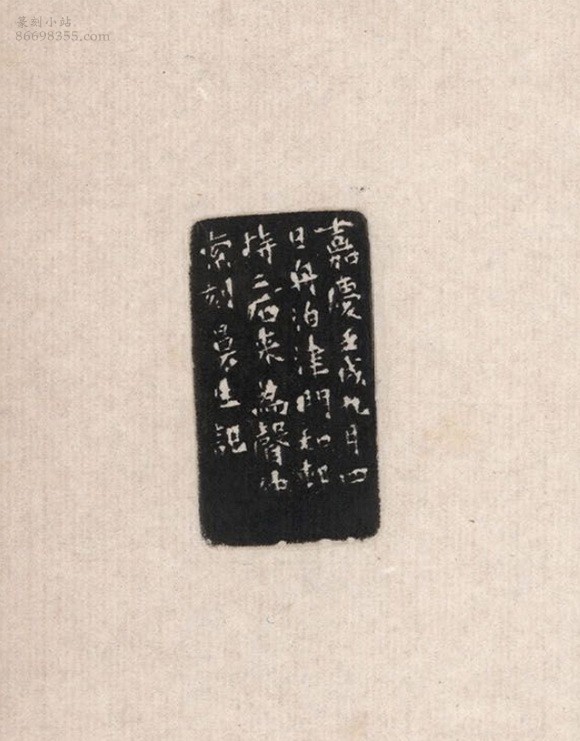 篆刻小站
86698355.com
嘉慶壬戌九月四
日舟泊津門和邨
持二石來為聲伯
索刻曼生記